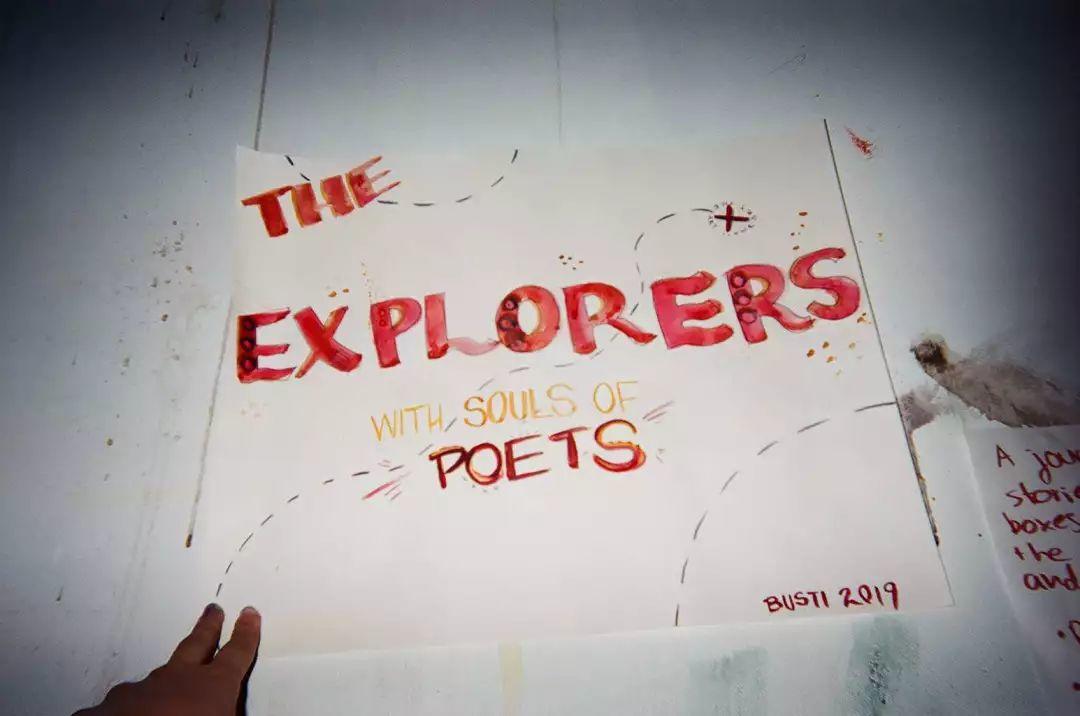 THE
EXPLORERS
WITH SOULS OF
POETS
BUSTI 2019
A
boxes
the
and